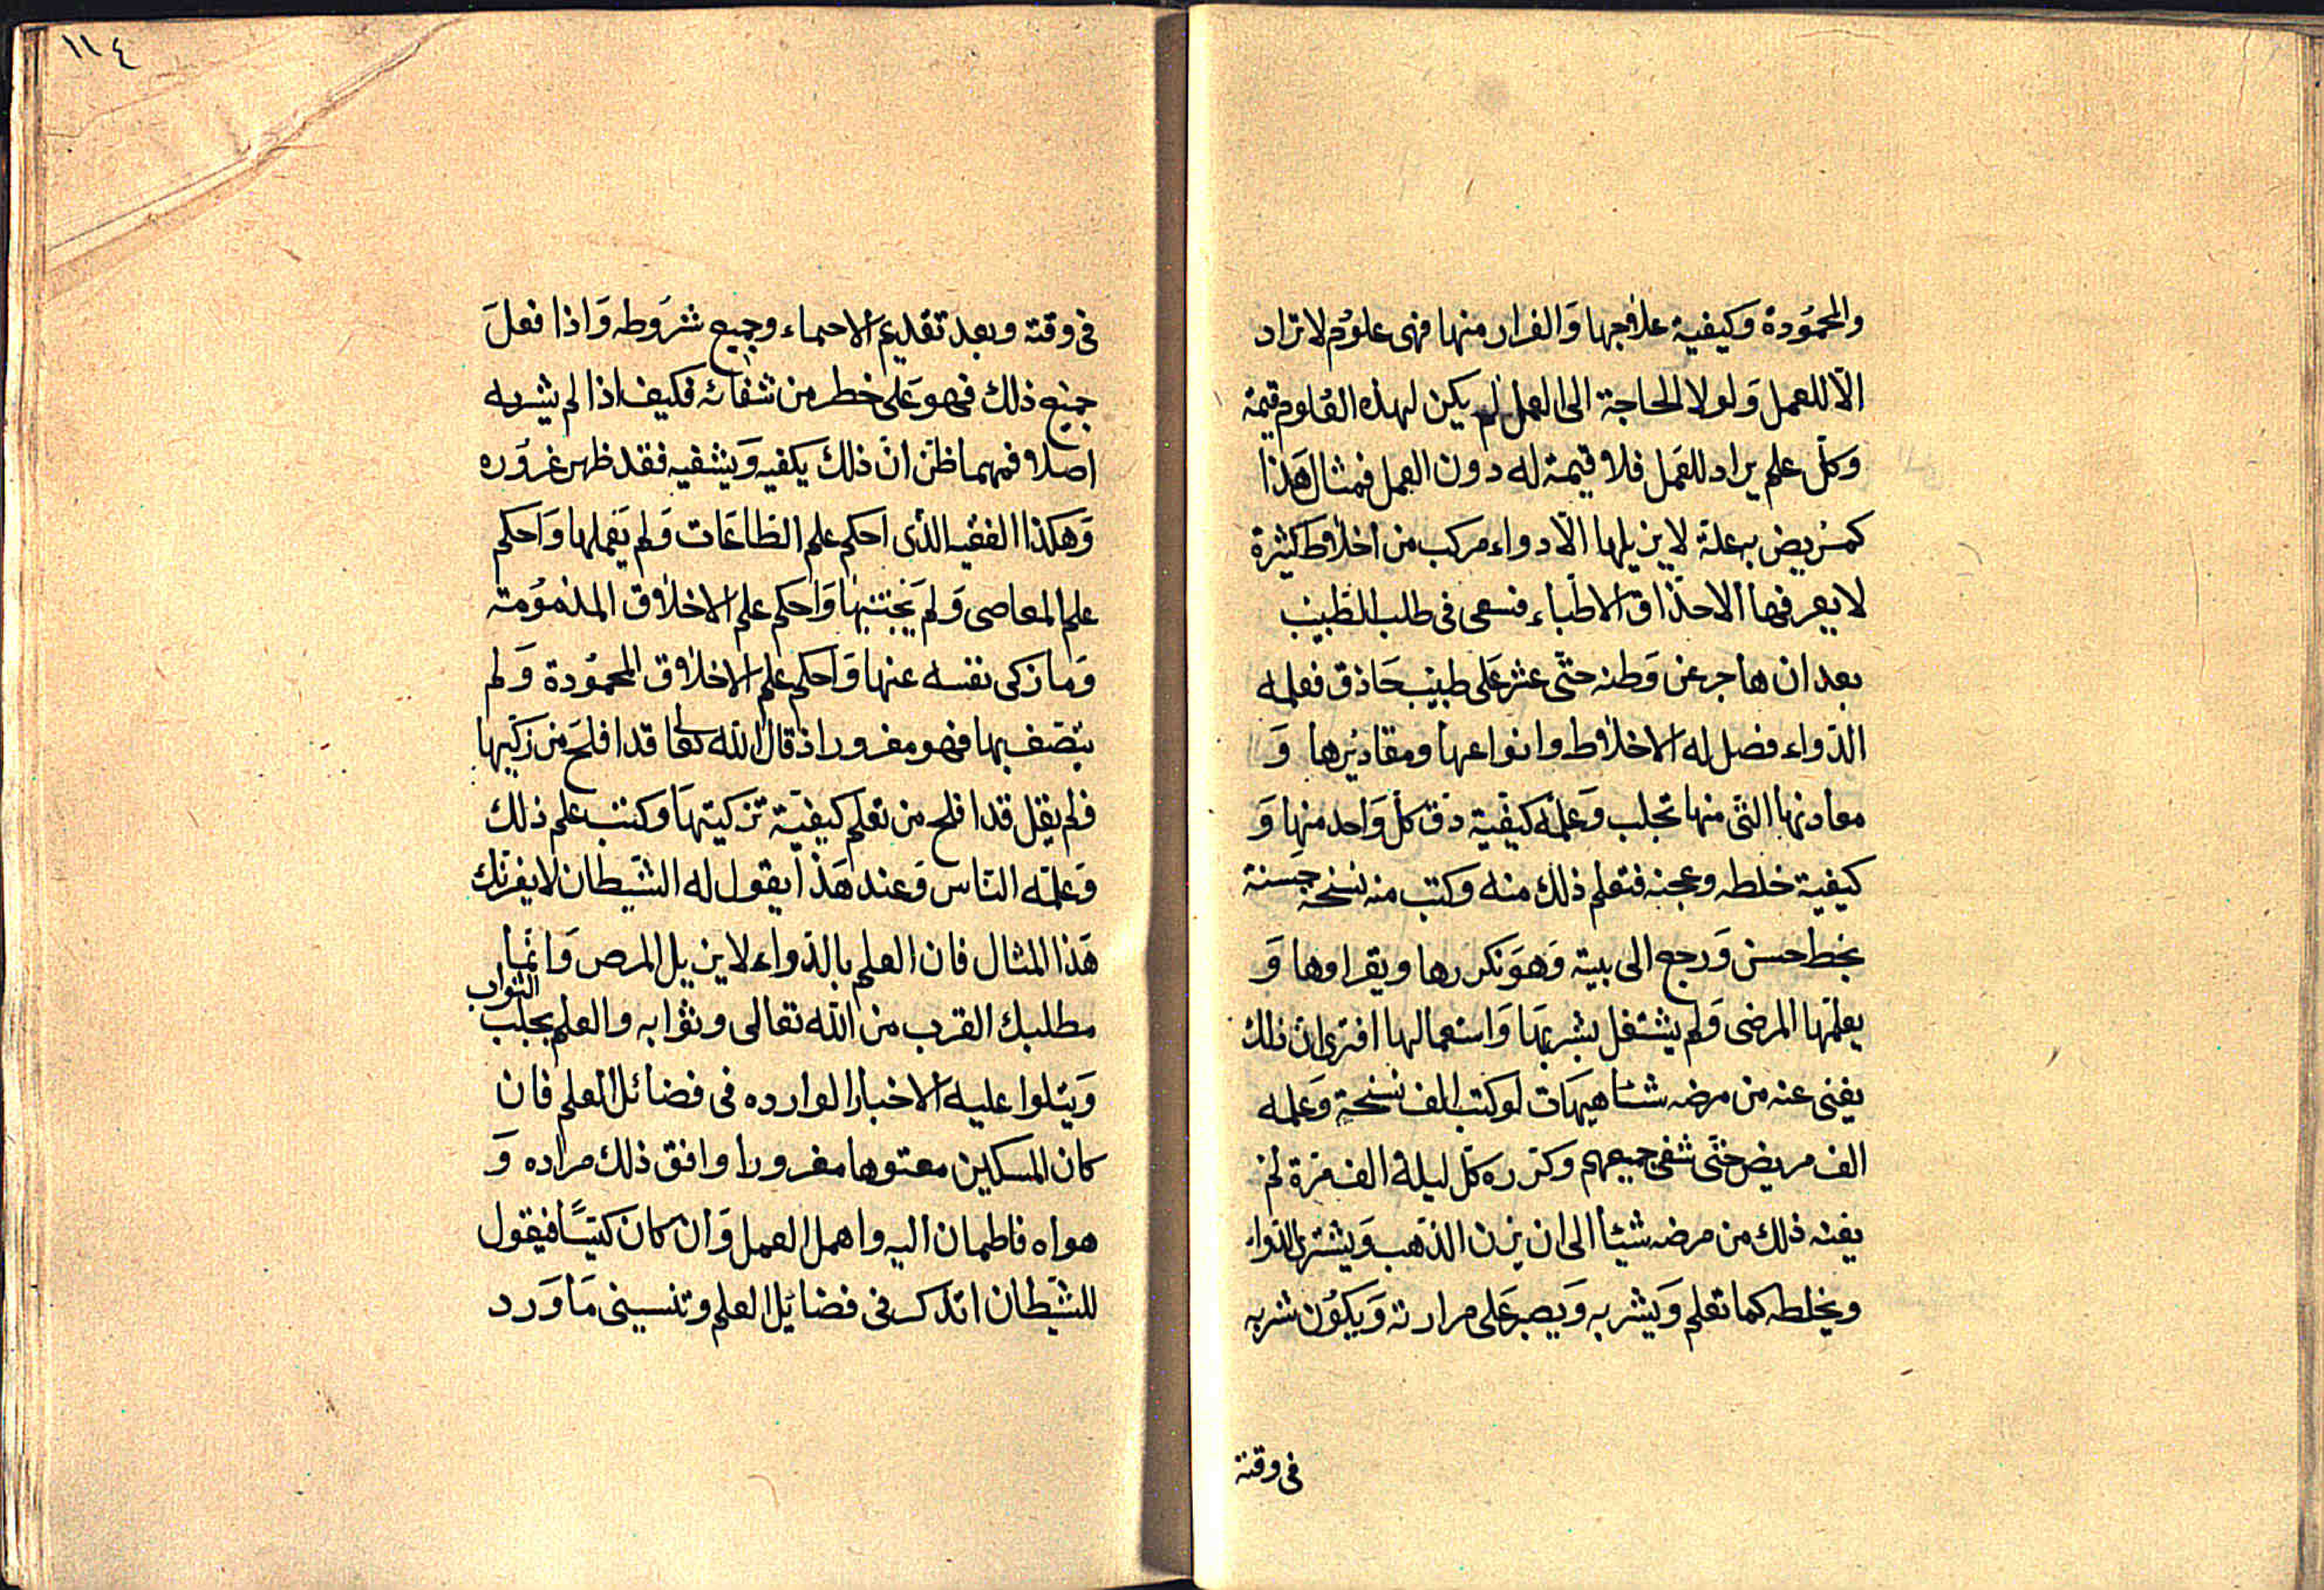 والمحمُودة وَكيفية علاجها وَالفرار منها فهى علوُم لا تراد
الّا للعمل وَلولا الحاجة الى العمل لم يكن لهذه العُلوم قيمة
وَكلّ علم يراد للعَمل فلا قيمة له دون العمل فمثال هَذا
كمرَيض به علة لا يزيلها الّا دواء مركب من اخلاط كثيرة
لا يعرفها الا حذّاق الاطبّاء فسعى فى طلب الطّبيب
بعد ان هاجر عن وَطنه حتّى عثر عَلى طبيب حَاذق فعلمه
الدّواء فصل له الاخلاط وانواعها ومقاديُرها وَ
معادنها التى منها تجلب وَعلّمه كيفيّة دَق كلّ وَاحد منها وَ
كيفية خلطه وعجنه فتعلم ذلك منه وكتب منه نسخة حَسنة
بخط حسن وَرجع الى بيته وَهوَ يكررها ويقراوها وَ
يعلّمها المرضى وَلم يشتغل بشربهَا وَاستعمالها افترى انّ ذلك
يغنى عنه من مرضه شئا هيهَات لو كتب الف نسخة وَعلمه
الف مريض حتّى شفى جميعهم وكرّره كلّ ليلة الف مرّة لم
يغنه ذلك من مرضه شيئا الى ان يزن الذّهب وَيشترى الدّواء
ويخلطه كما تعلم وَيشربه وَيصبر عَلى مرارته وَيكوُن شربه
فى وقته
١١٤
فى وقته وبعد تقديم الاحماء وجميع شروَطه وَاذا فعلَ
جميع ذلك فهو عَلى خطر من شفائه فكيف اذا لم يشربه
اصلا فمهما ظنّ انّ ذلك يكفيه وَيشفيه فقد ظهر غروَره
وَهكذا الفقيه الذّى احكم علم الطّاعَات وَلم يَعملها وَاحكم
علم المعاصى وَلم يَجتنبها وَاحكم علم الاخلاق المذموُمة
وَما زكى نفسه عنها وَاحكم علم الاخلاق المحموُدة وَلم
يتّصف بها فهو مغرور اذ قال الله تعا قد افلحَ من زَكيّها
فلم يقل قد افلح من تعلم كيفيّة تزكيتهَا وكتب علم ذلك
وَعلّمه النّاس وَعند هَذا يقول له الشّيطان لا يغرنّك
هَذا المثال فان العلم بالدّواء لا يزيل المرص وَانّما
مطلبك القرب من الله تعالى وثوابه والعلم يجلب الثواب
وَيتلوا عليه الاخبار الوارده فى فضائل العلم فان
كان المسكين معتوها مغرورا وافق ذلك مراده وَ
هواه فاطمان اليه واهمل العمل وَان كانَ كيّسًا فيقول
للشّيطان اتذكرنى فضايل العلم وتنسينى مَا وَرد